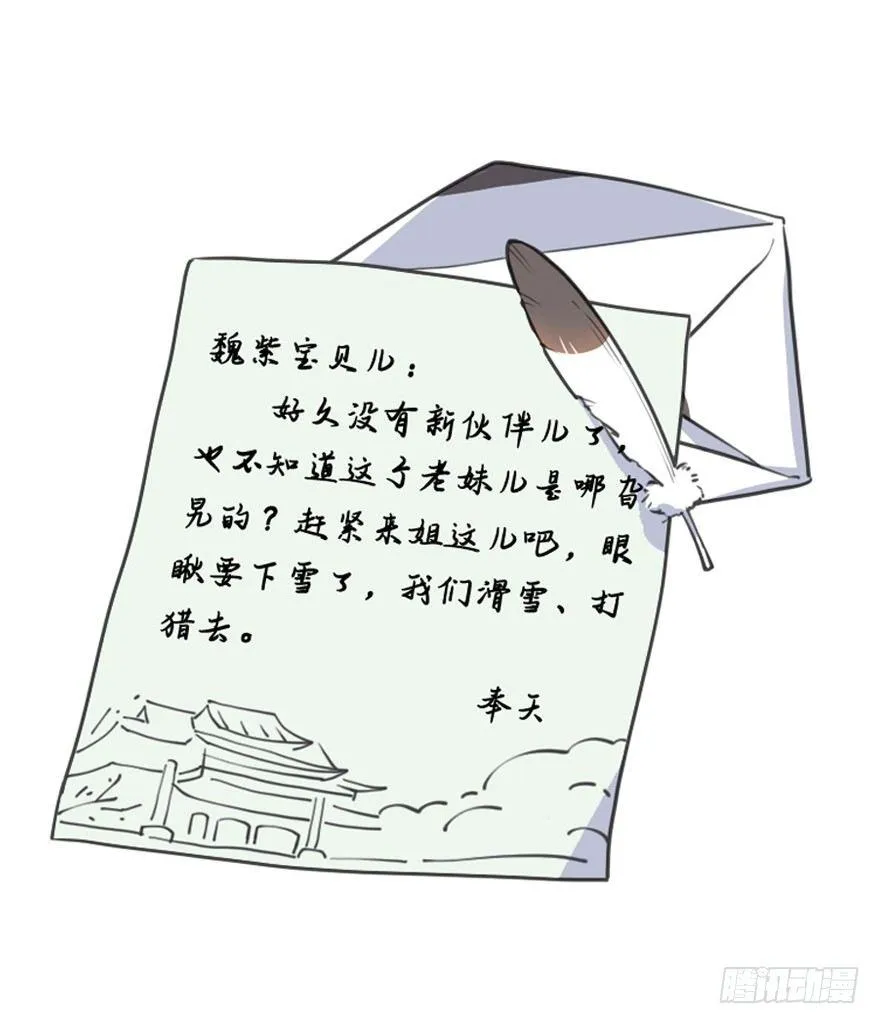 魏紫宝贝儿：
好久没有新伙伴儿了，
也不知道这个老妹儿是哪旮
旯的？赶紧来姐这儿吧，眼
瞅要下雪了，我们滑雪、打
猎去。
奉天
腾讯动漫